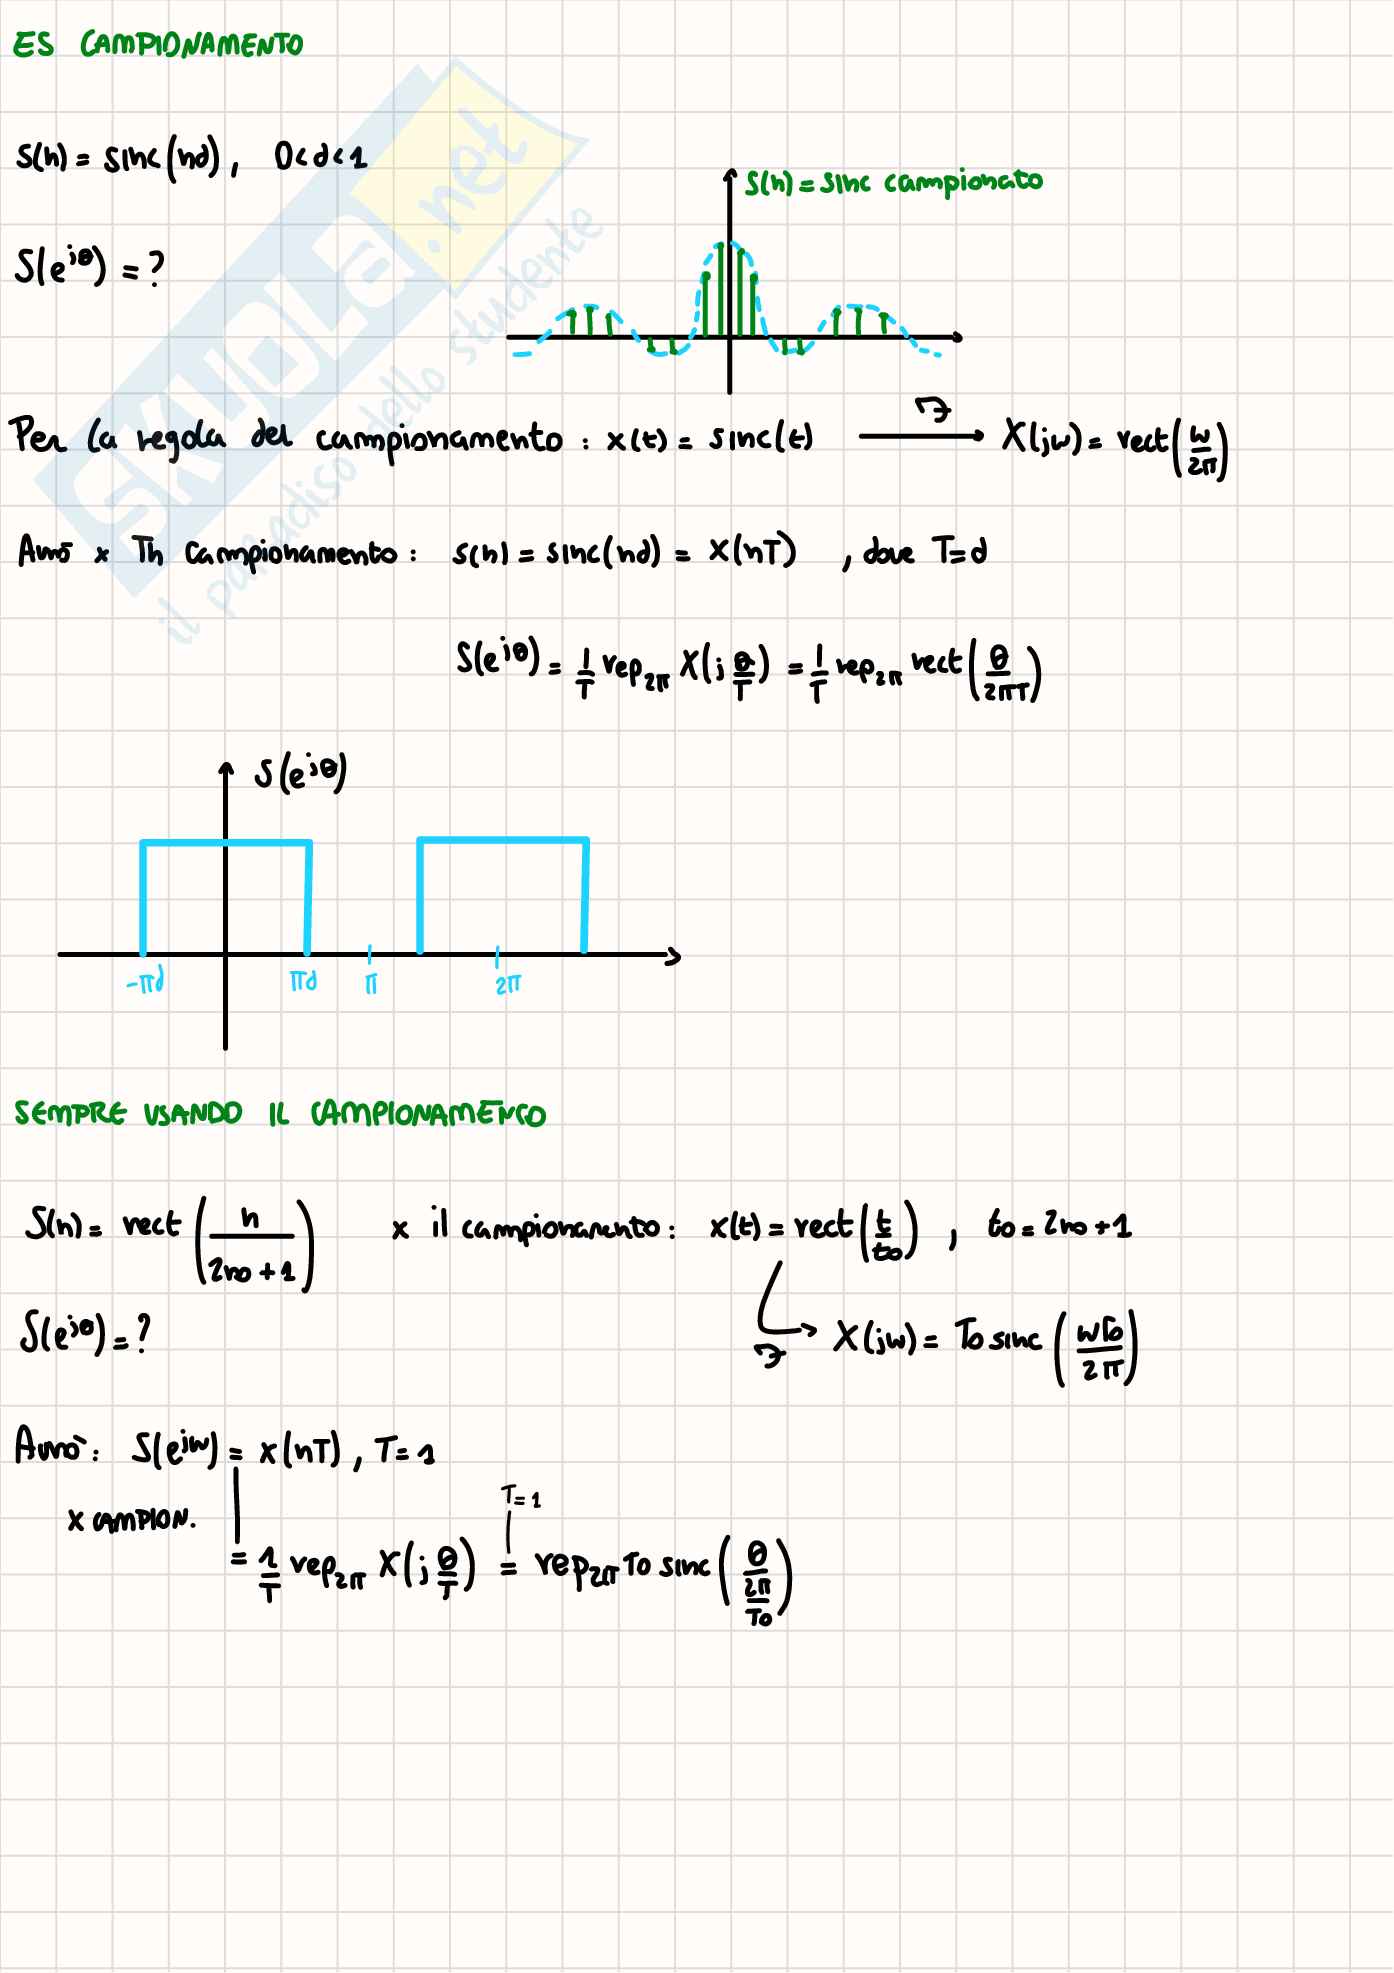 ES CAMPIONAMENTO
S(n) = sinc(nd), 0<d<1
S(n) = sinc campionato
S(e^jθ) = ?
Per la regola del campionamento: x(t) = sinc(t) ⟶ℱ X(jw) = rect(w/2π)
Avrò x Th Campionamento: s(n) = sinc(nd) = x(nT) , dove T=d
S(e^jθ) = 1/T rep_2π X(j θ/T) = 1/T rep_2π rect(θ/2πT)
S(e^jθ)
-πd πd π 2π
SEMPRE USANDO IL CAMPIONAMENTO
S(n) = rect(n/2n0+1) x il campionamento: x(t) = rect(t/t0) , t0 = 2n0+1
S(e^jθ) = ? ℱ X(jw) = T0 sinc(wT0/2π)
Avrò: S(e^jw) = x(nT), T=1
x CAMPION.
T=1
= 1/T rep_2π X(j θ/T) = rep_2π T0 sinc(θ/(2π/T0))
SKUOLA.net
il paradiso dello studente